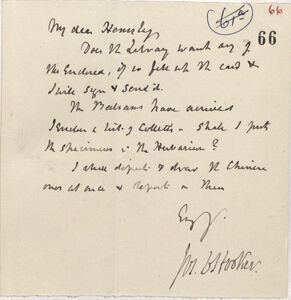 61a
66
66
My dear Hemsley
Does the Library want any of
the Enclosed, if so fill up the card &
I will sign & send it.
The Balsams have arrived
I enclose a list of Collectors – Shall I put
the specimens in the Herbarium?
I shall dissect & draw the Chinese
ones at once & report on them
Jos. D Hooker.